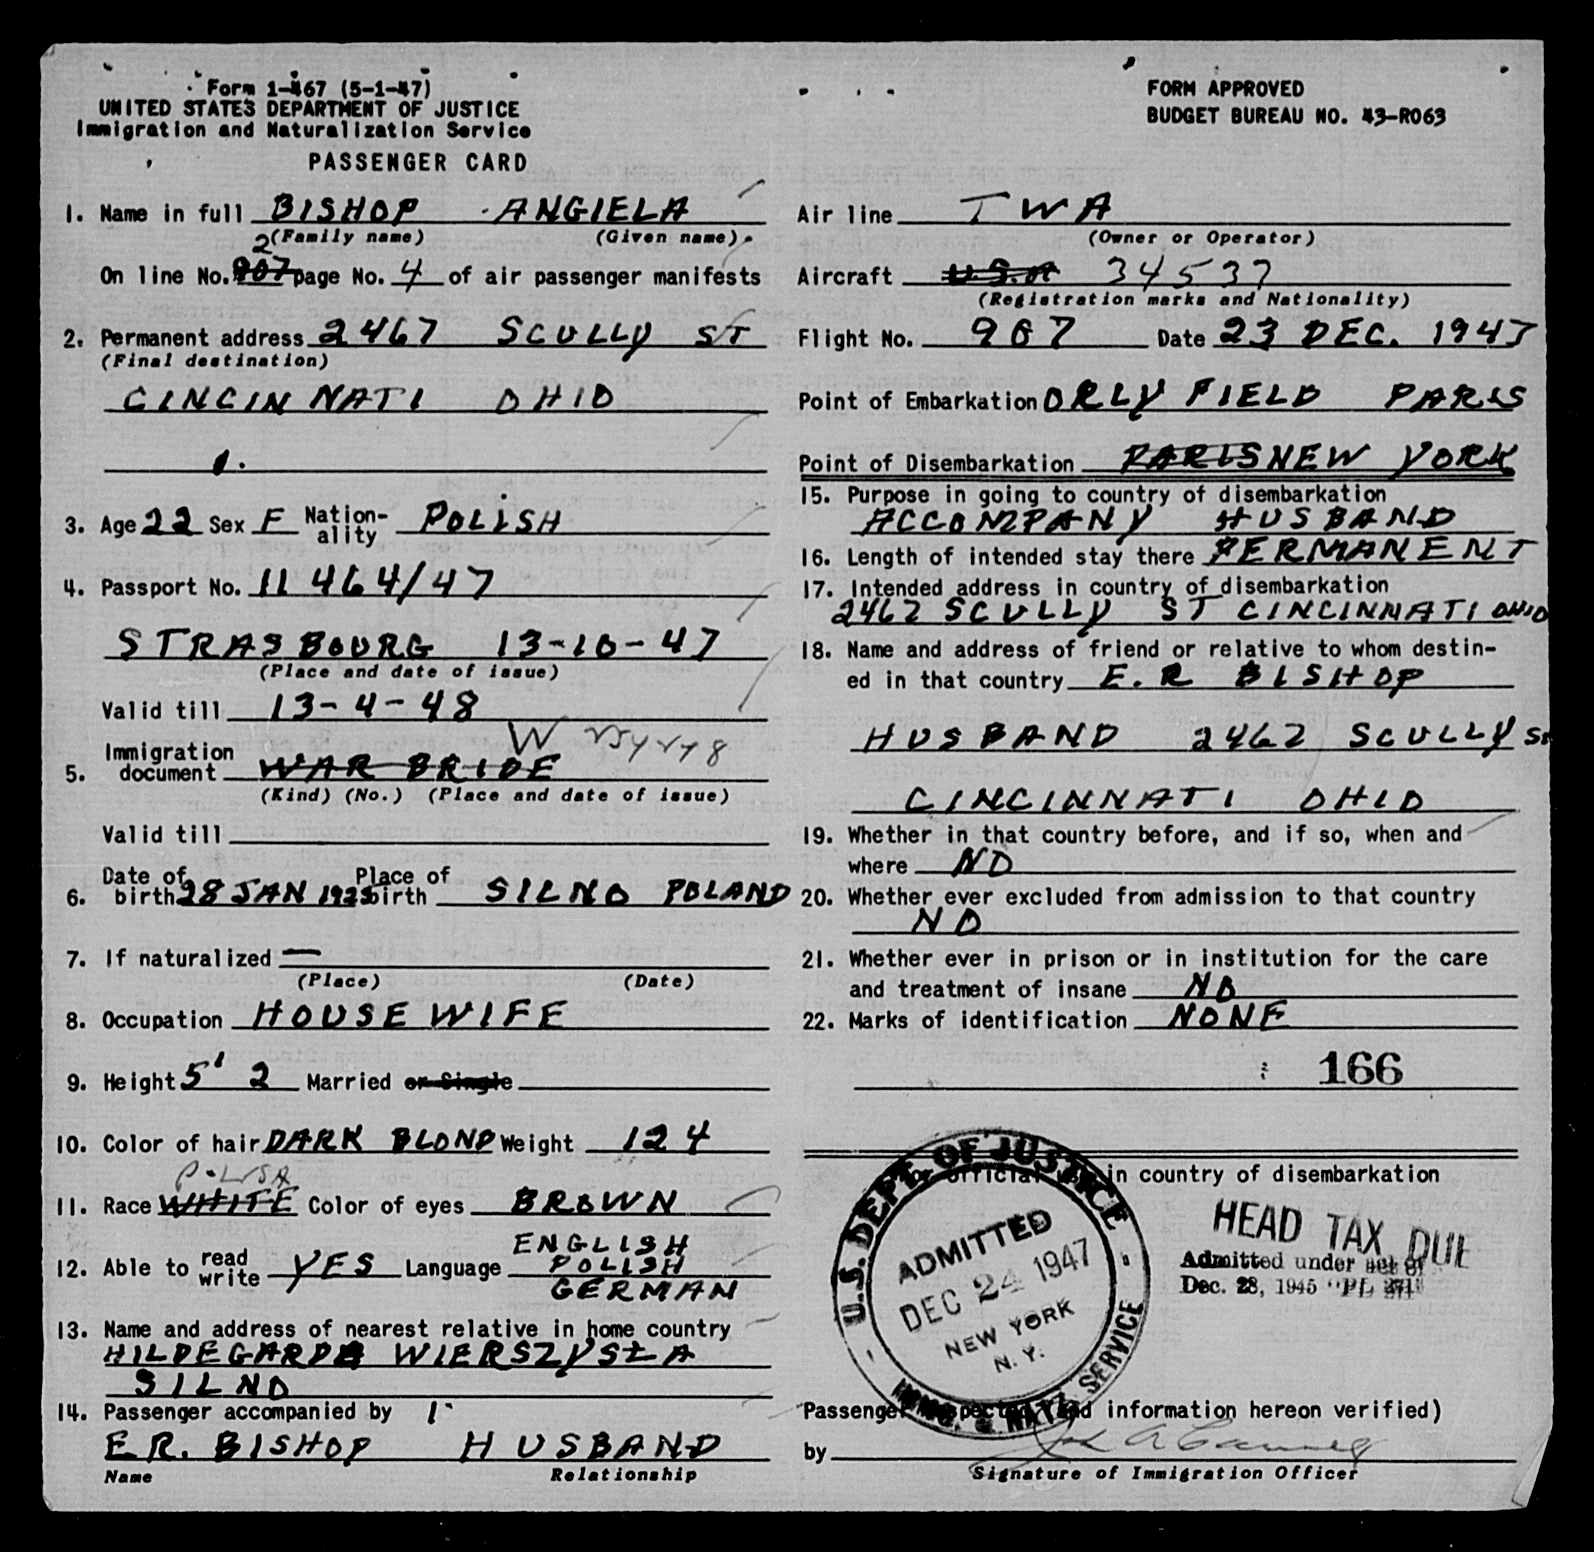 Form I-467 (5-1-47)
UNITED STATES DEPARTMENT OF JUSTICE
Immigration and Naturalization Service
PASSENGER CARD
FORM APPROVED
BUDGET BUREAU NO. 43-R063
1. Name in full BISHOP ANGIELA
(Family name) (Given name)
On line No. 2 907 page No. 4 of air passenger manifests
2. Permanent address 2467 SCULLY ST
(Final destination)
CINCINNATI OHIO
3. Age 22 Sex F Nation-ality POLISH
4. Passport No. 11 464/47
STRASBOURG 13-10-47
(Place and date of issue)
Valid till 13-4-48
W
5. Immigration document WAR BRIDE
(Kind) (No.) (Place and date of issue)
Valid till
6. Date of birth 28 JAN 1925 Place of birth SILNO POLAND
7. If naturalized —
(Place) (Date)
8. Occupation HOUSE WIFE
9. Height 5' 2 Married or Single
10. Color of hair DARK BLOND Weight 124
11. Race WHITE Color of eyes BROWN
12. Able to read write YES Language ENGLISH
POLISH
GERMAN
13. Name and address of nearest relative in home country
HILDEGARDA WIERSZYSŁA
SILNO
14. Passenger accompanied by 1
E.R. BISHOP HUSBAND
Name Relationship
Air line TWA
(Owner or Operator)
Aircraft U.S.A 34537
(Registration marks and Nationality)
Flight No. 967 Date 23 DEC. 1947
Point of Embarkation ORLY FIELD PARIS
Point of Disembarkation PARIS NEW YORK
15. Purpose in going to country of disembarkation
ACCOMPANY HUSBAND
16. Length of intended stay there PERMANENT
17. Intended address in country of disembarkation
2467 SCULLY ST CINCINNATI OHIO
18. Name and address of friend or relative to whom destin-
ed in that country E.R BISHOP
HUSBAND 2467 SCULLY ST
CINCINNATI OHIO
19. Whether in that country before, and if so, when and
where NO
20. Whether ever excluded from admission to that country
NO
21. Whether ever in prison or in institution for the care
and treatment of insane NO
22. Marks of identification NONE
166
official use in country of disembarkation
U.S. DEPT. OF JUSTICE
ADMITTED
DEC 24 1947
NEW YORK
N. Y.
IMMIG. & NATZ. SERVICE
HEAD TAX DUE
Admitted under act of
Dec. 28, 1945 "PL 271"
Passenger inspected (and information hereon verified)
by
Signature of Immigration Officer